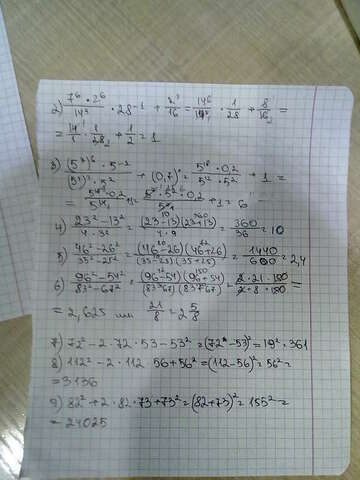 2) 7⁶·2⁶/14⁵ · 28⁻¹ + 2³/16 = 14⁶/14⁵ · 1/28 + 8/16₂ =
= 14/1 · 1/28₂ + 1/2 = 1
3) (5³)⁶·5⁻¹/(5⁴)³·5² + (0,7)⁰ = 5¹⁸·0,2/5¹²·5² + 1 =
4) 23²-13²/4·3² = (23-13)(23+13)/4·9 = 360/36 = 10
5) 46²-26²/35²-25² = (46-26)(46+26)/(35-25)(35+25) = 1440/600 = 2,4
6) 96²-54²/83²-67² = (96-54)(96+54)/(83-67)(83+67) = 2·21·150/2·8·150 =
= 2,625 или 21/8 = 2 5/8
7) 72²-2·72·53-53² = (72-53)² = 19² = 361
8) 112²-2·112 56+56² = (112-56)² = 56² =
= 3136
9) 82²+2·82·73+73² = (82+73)² = 155² =
= 24025